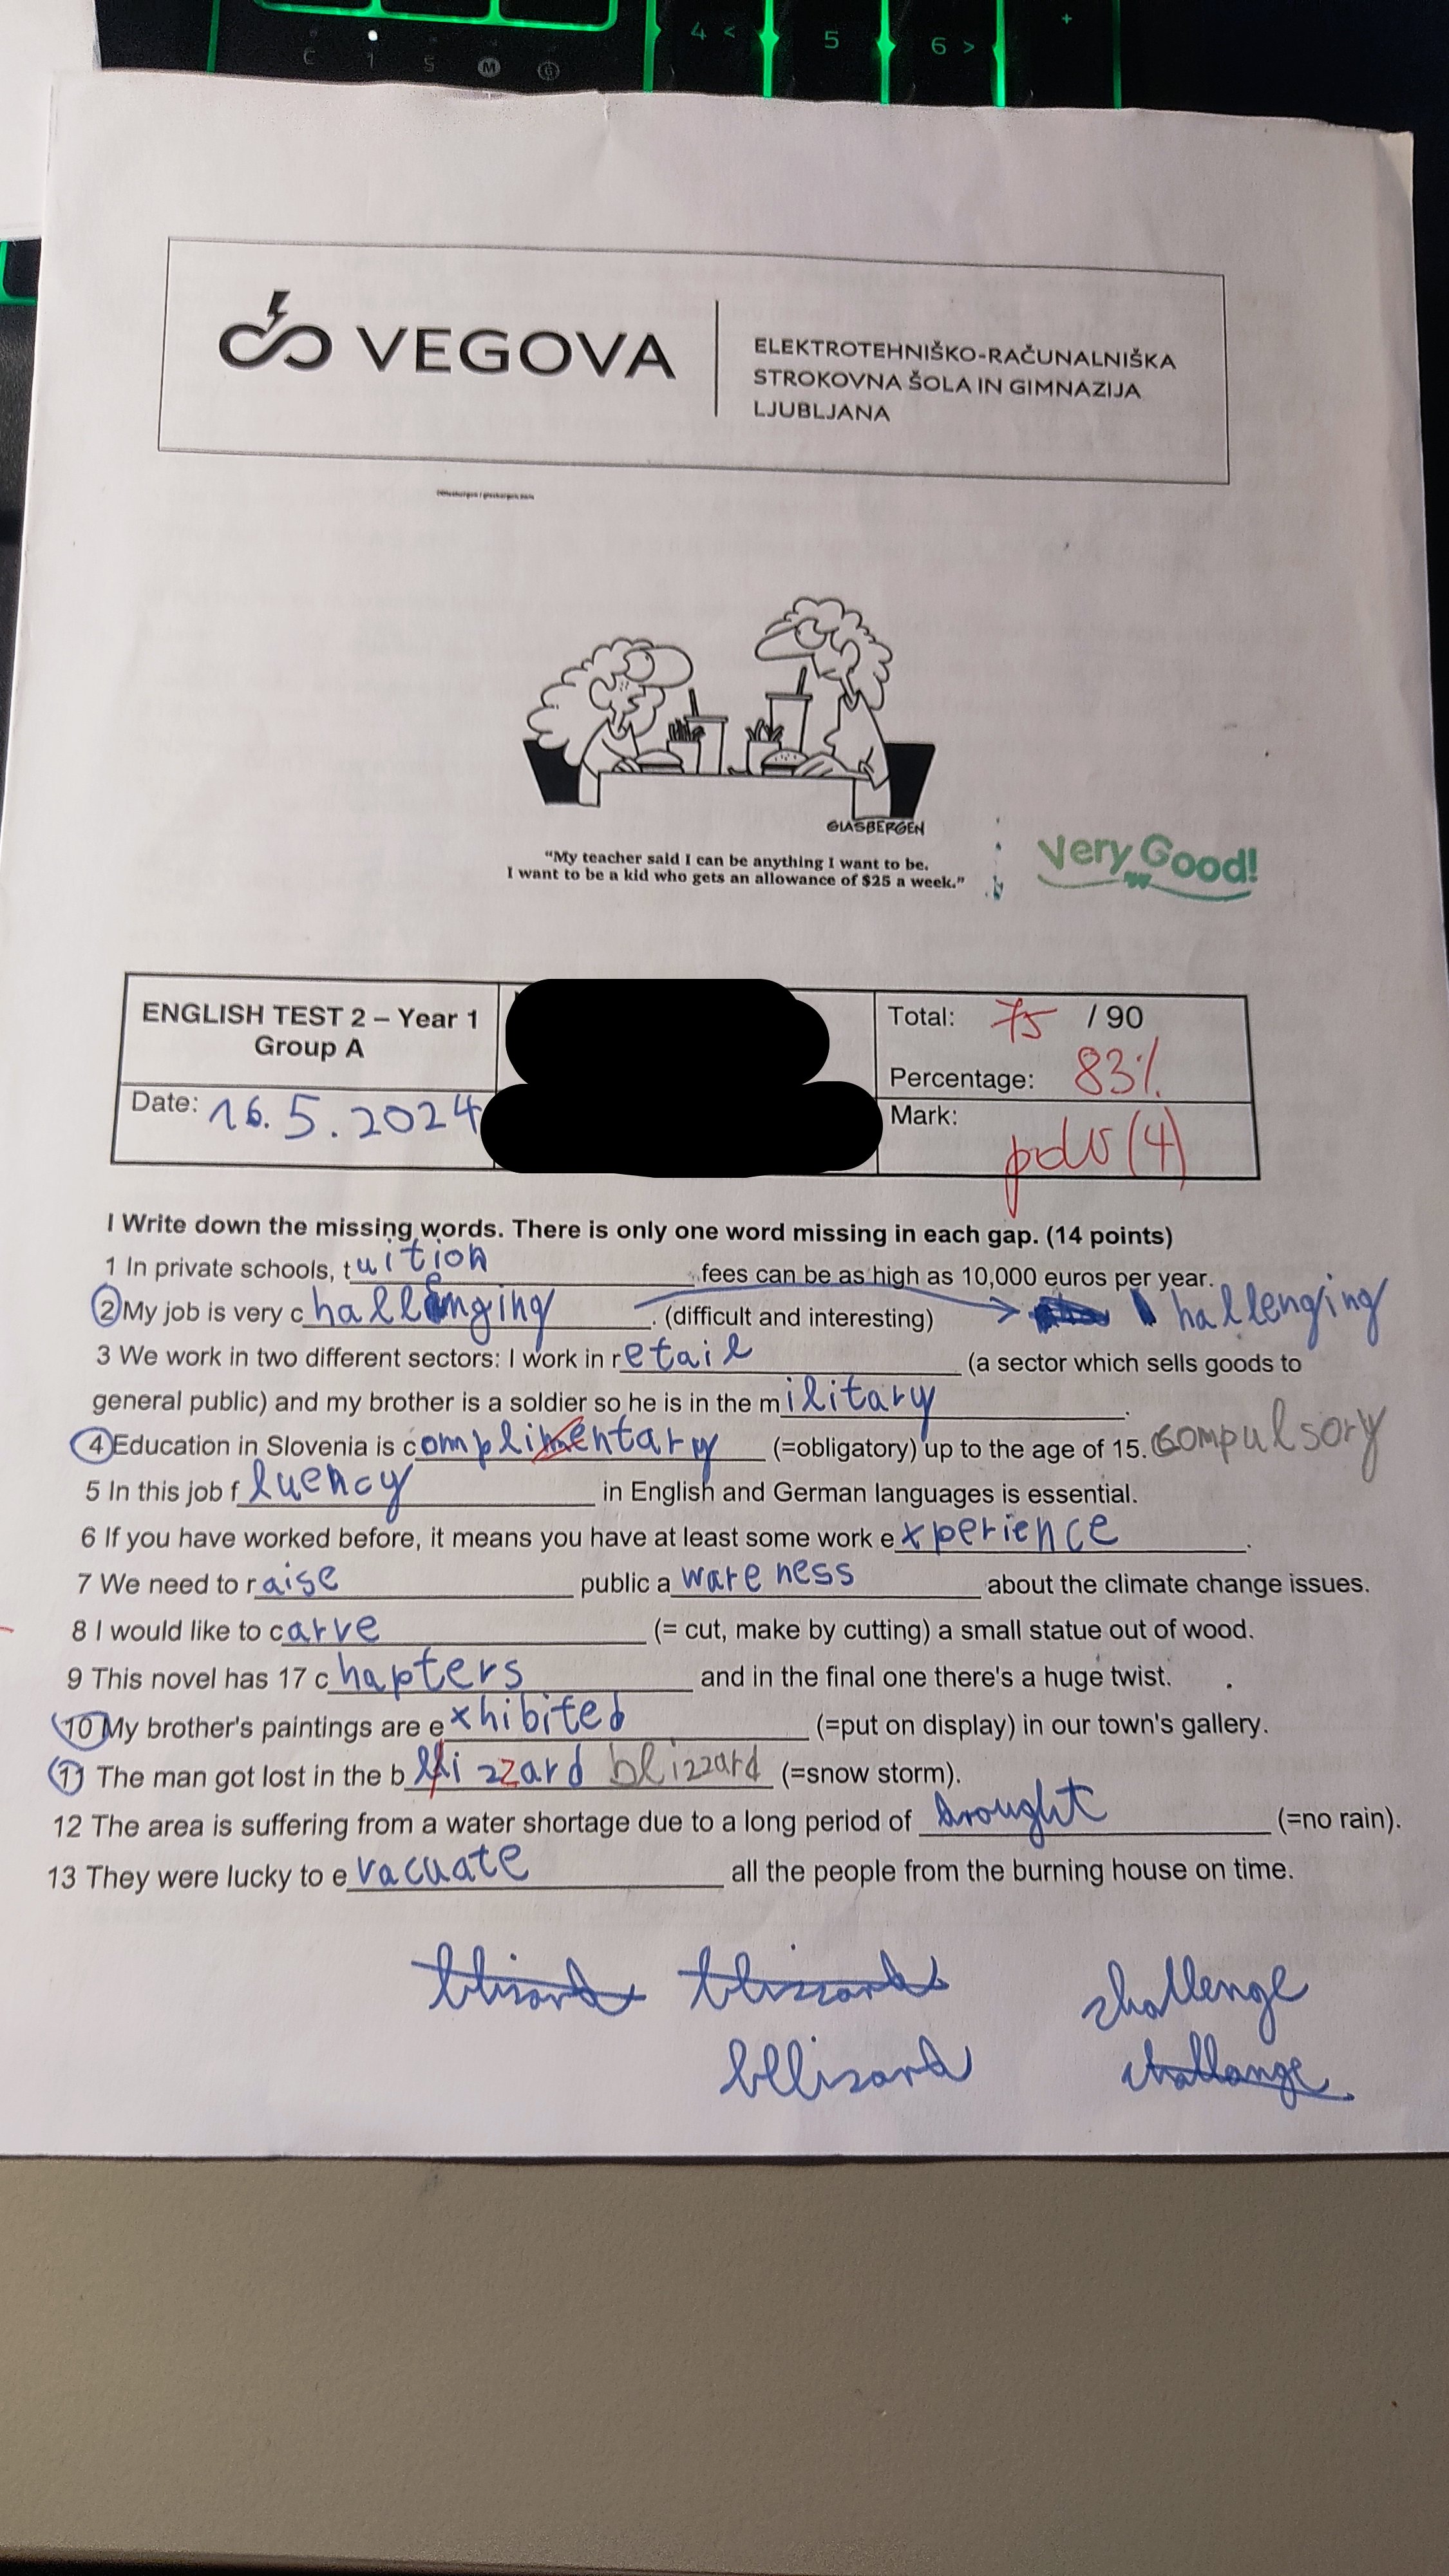 4 < 5 6 > +
C 1 S M G
VEGOVA
ELEKTROTEHNIŠKO-RAČUNALNIŠKA
STROKOVNA ŠOLA IN GIMNAZIJA
LJUBLJANA
GLASBERGEN
"My teacher said I can be anything I want to be.
I want to be a kid who gets an allowance of $25 a week."
Very Good!
ENGLISH TEST 2 – Year 1
Group A
Total: 75 / 90
Percentage: 83%
Date: 16.5.2024
Mark: pdb (4)
I Write down the missing words. There is only one word missing in each gap. (14 points)
1 In private schools, tuition fees can be as high as 10,000 euros per year.
2 My job is very challenging. (difficult and interesting) hallenging
3 We work in two different sectors: I work in retail (a sector which sells goods to
general public) and my brother is a soldier so he is in the military.
4 Education in Slovenia is complimentary (=obligatory) up to the age of 15. compulsory
5 In this job fluency in English and German languages is essential.
6 If you have worked before, it means you have at least some work experience.
7 We need to raise public awareness about the climate change issues.
8 I would like to carve (= cut, make by cutting) a small statue out of wood.
9 This novel has 17 chapters and in the final one there's a huge twist.
10 My brother's paintings are exhibited (=put on display) in our town's gallery.
11 The man got lost in the bllizzard blizzard (=snow storm).
12 The area is suffering from a water shortage due to a long period of drought (=no rain).
13 They were lucky to evacuate all the people from the burning house on time.
blizard blizzard challenge
bllizard challange